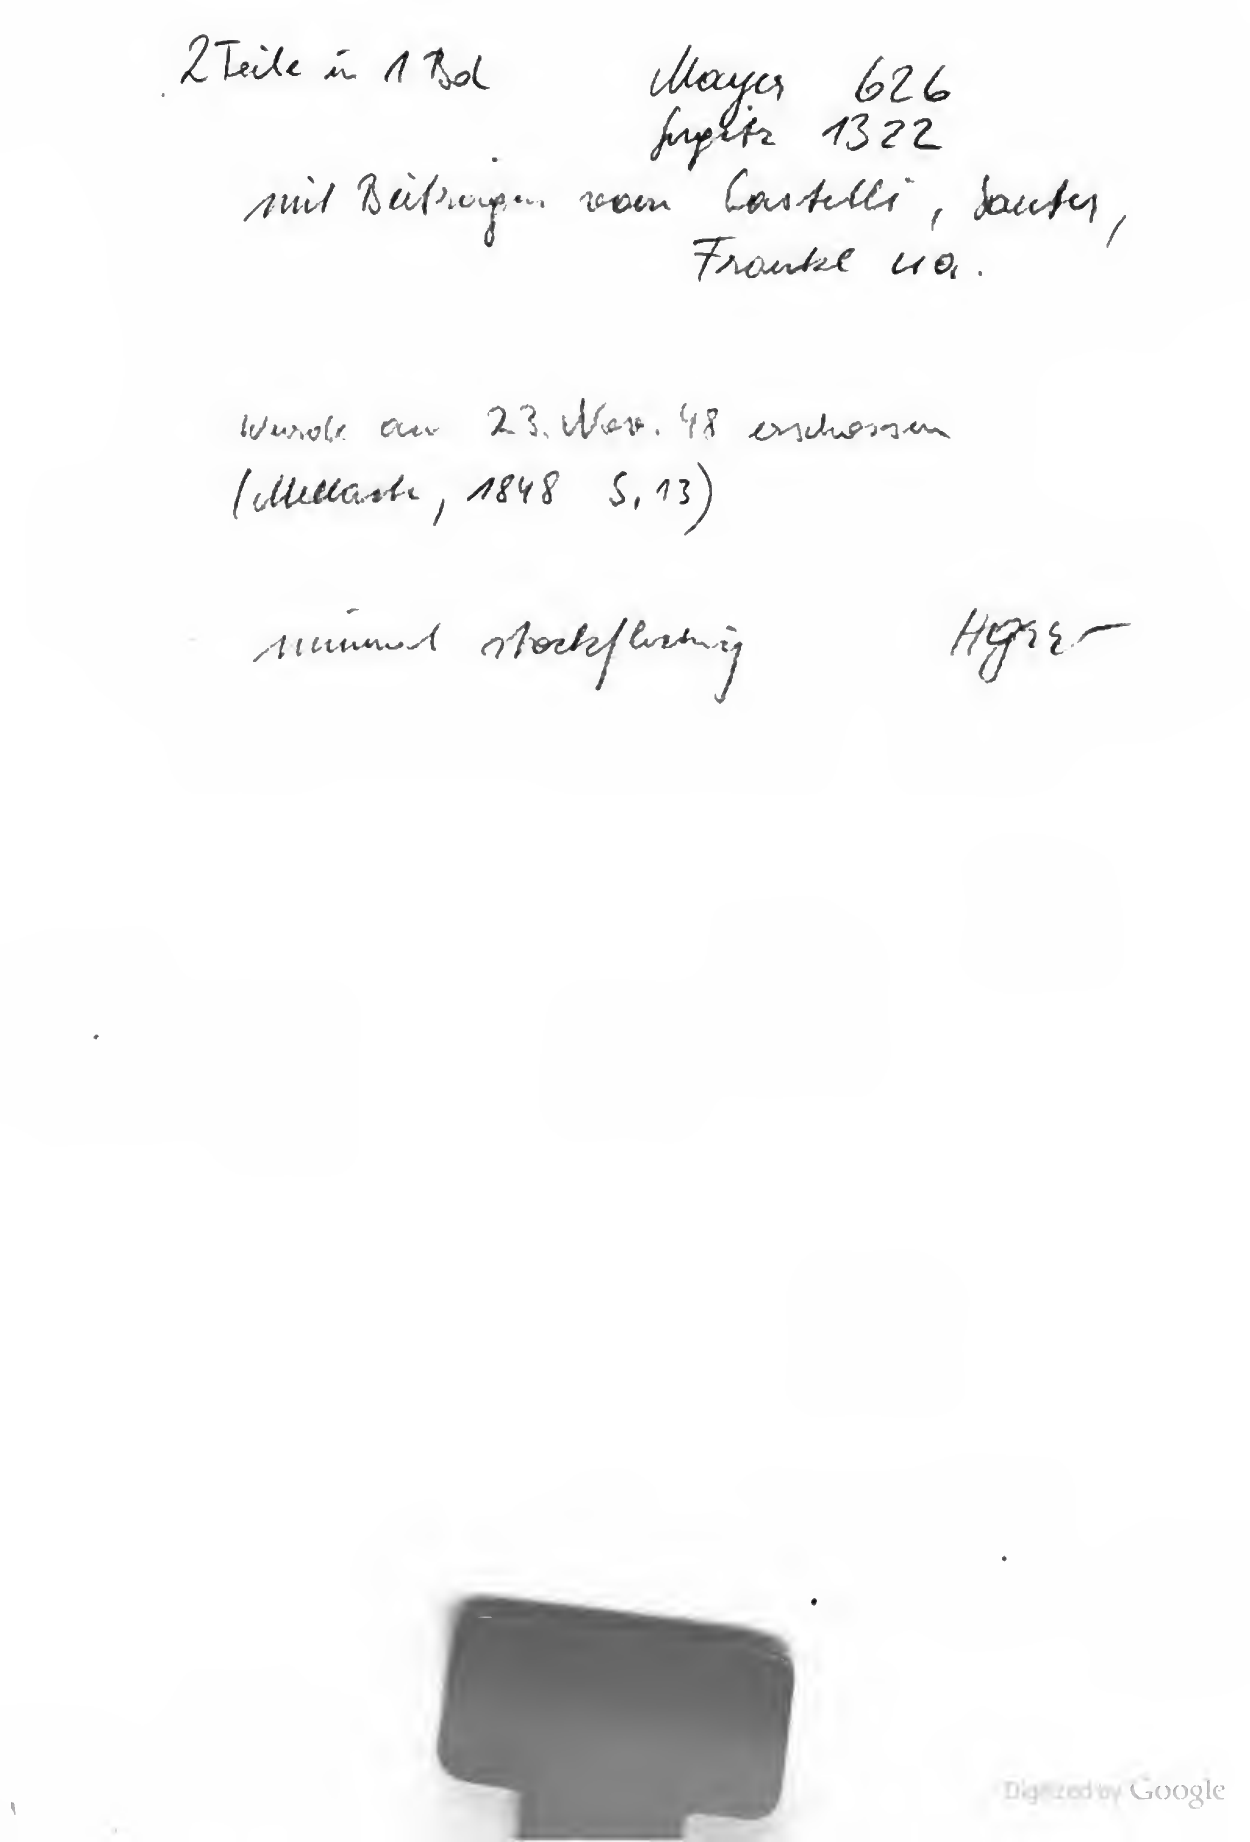 2 Teile in 1 Bd
Mayer 626
Gugitz 1322
mit Beiträgen von Castelli, Sauter,
Frankl ua.
wurde am 23. Nov. 48 erschossen
(, 1848 S. 13)
minimal stockfleckig
Digitized by Google